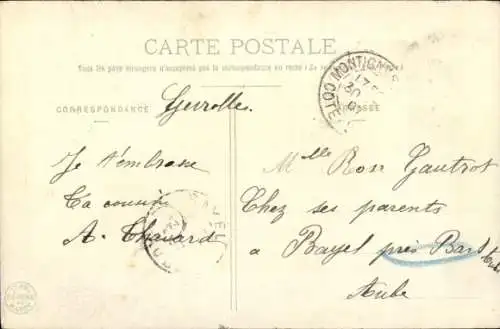 CARTE POSTALE
Tous les pays étrangers n'acceptent pas la correspondance au recto
CORRESPONDENCE
ADRESSE
Gevrolles
MONTIGNY
COTE
17
30
BAYEL
Je t'embrasse
Ta cousine
A. Thévard
Mlle Rose Gautrot
Chez ses parents
à Bayel près Bar s/
Aube
Aube